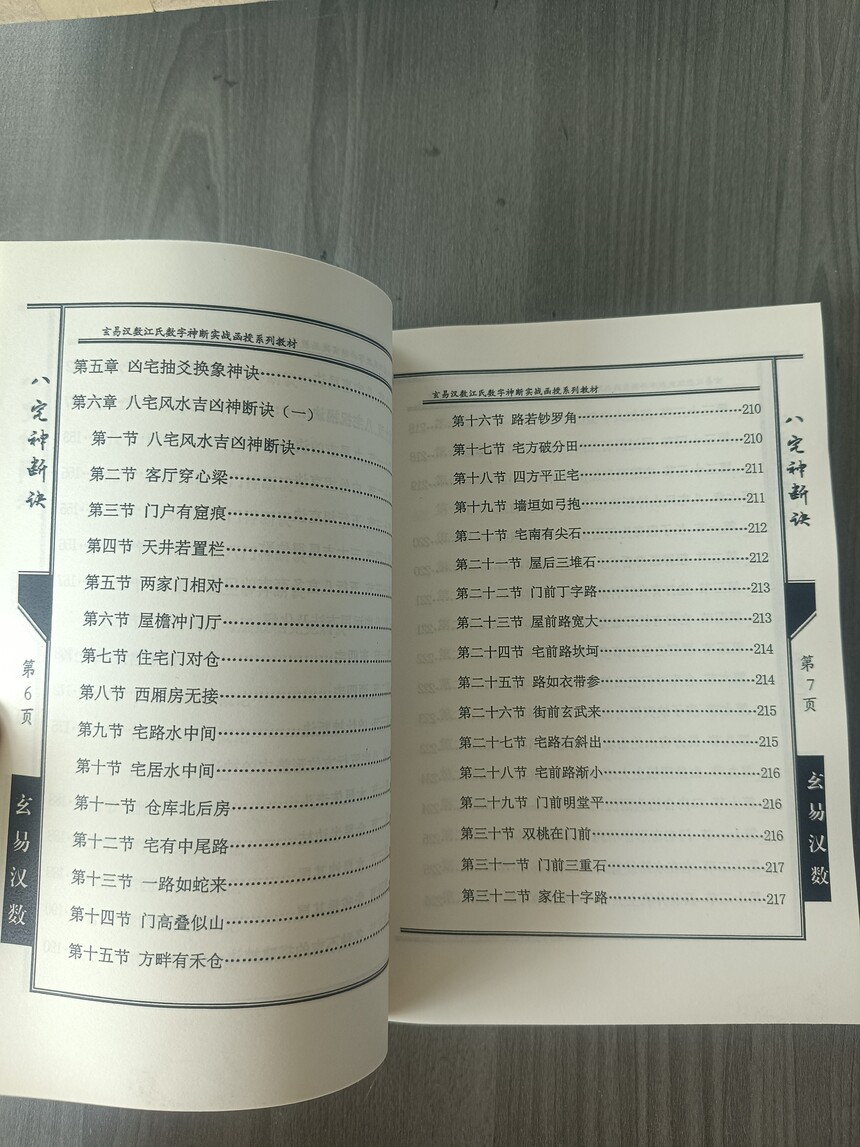 玄易汉数江氏数字神断实战函授系列教材
第五章 凶宅抽爻换象神诀
第六章 八宅风水吉凶神断诀（一）
第一节 八宅风水吉凶神断诀
第二节 客厅穿心梁
第三节 门户有窟痕
第四节 天井若置栏
第五节 两家门相对
第六节 屋檐冲门厅
第七节 住宅门对仓
第八节 西厢房无接
第九节 宅路水中间
第十节 宅居水中间
第十一节 仓库北后房
第十二节 宅有中尾路
第十三节 一路如蛇来
第十四节 门高叠似山
第十五节 方畔有禾仓
八宅神断诀
第6页
玄易汉数
玄易汉数江氏数字神断实战函授系列教材
第十六节 路若钞罗角 210
第十七节 宅方破分田 210
第十八节 四方平正宅 211
第十九节 墙垣如弓抱 211
第二十节 宅南有尖石 212
第二十一节 屋后三堆石 212
第二十二节 门前丁字路 213
第二十三节 屋前路宽大 213
第二十四节 宅前路坎坷 214
第二十五节 路如衣带参 214
第二十六节 街前玄武来 215
第二十七节 宅路右斜出 215
第二十八节 宅前路渐小 216
第二十九节 门前明堂平 216
第三十节 双桃在门前 216
第三十一节 门前三重石 217
第三十二节 家住十字路 217
八宅神断诀
第7页
玄易汉数